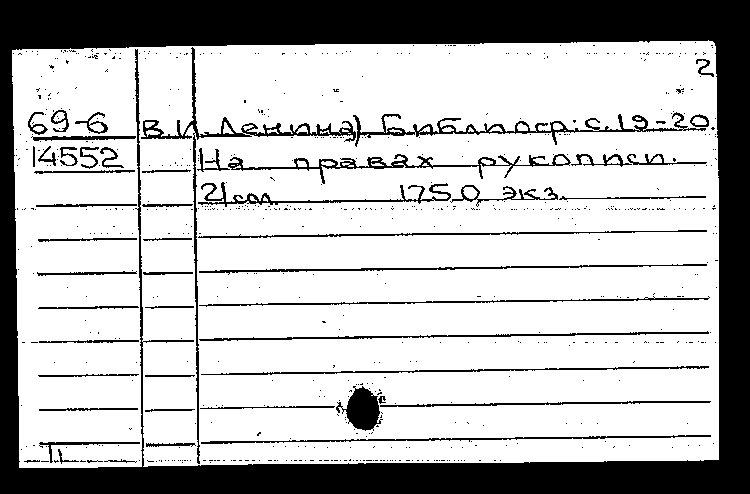 2
69-6 В.И. Ленина). Библиогр: с. 19-20.
14552 На правах рукописи.
1750 экз.